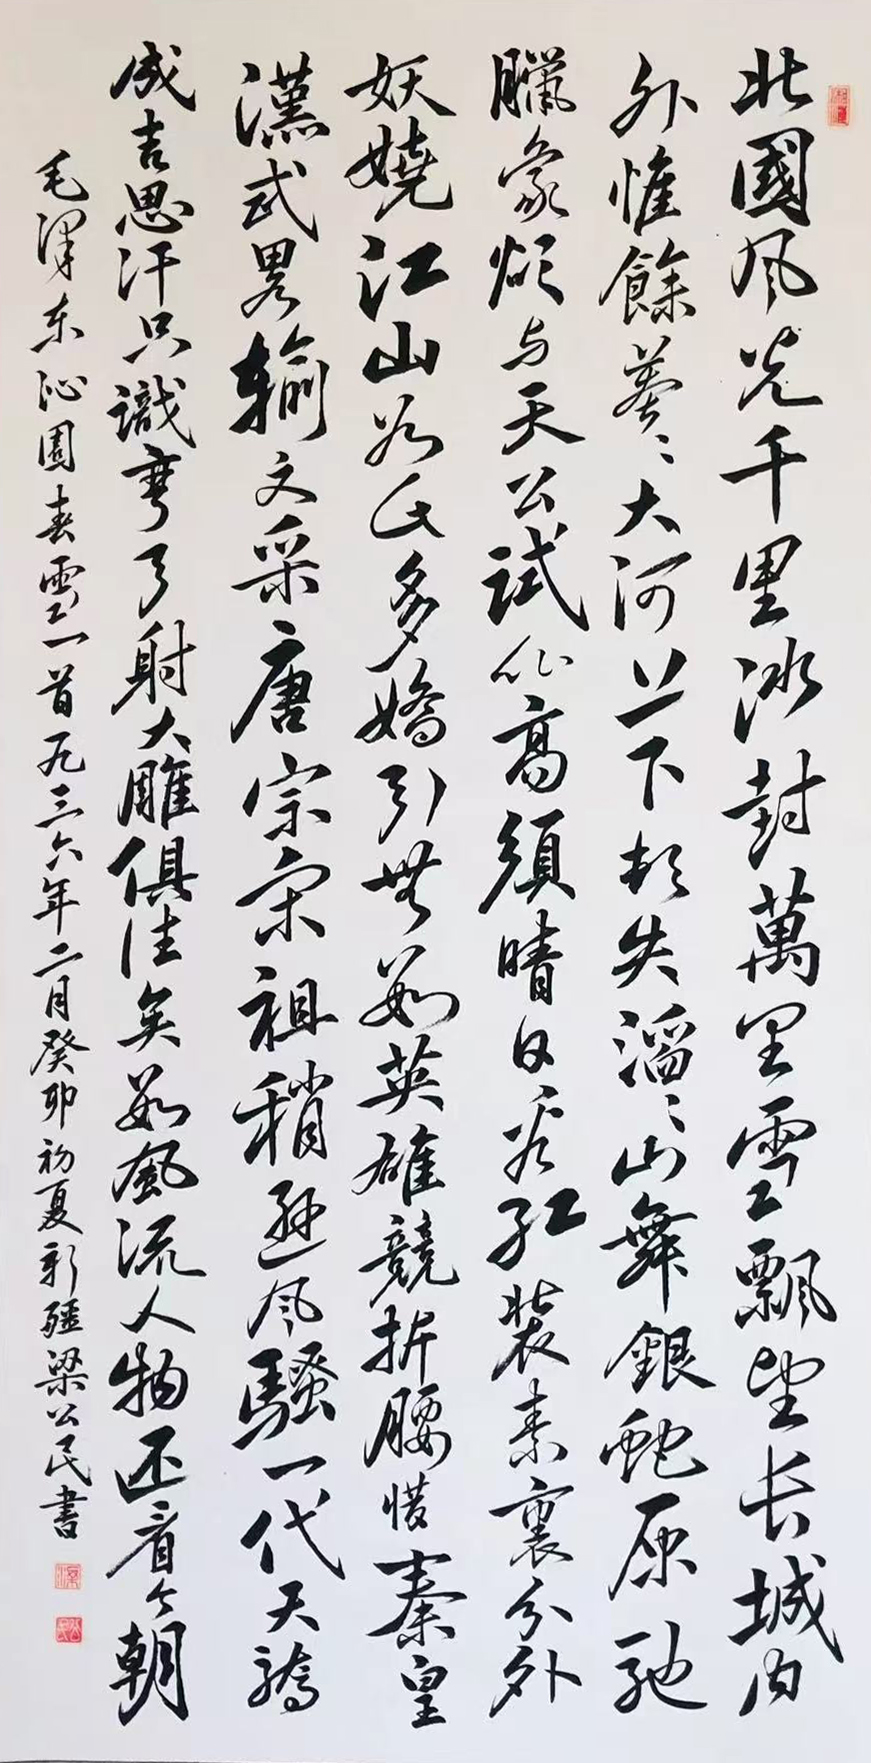 北國风光千里冰封萬里雪飄望长城内
外惟餘莽〻大河上下頓失滔〻山舞銀蛇原馳
臘象欲与天公試比高須晴日看红装素裹分外
妖娆江山如此多嬌引無數英雄競折腰惜秦皇
漢武畧输文采唐宗宋祖稍遜风騷一代天驕
成吉思汗只識弯弓射大雕俱往矣數風流人物还看今朝
毛泽东沁园春雪一首一九三六年二月癸卯初夏新疆梁公民書